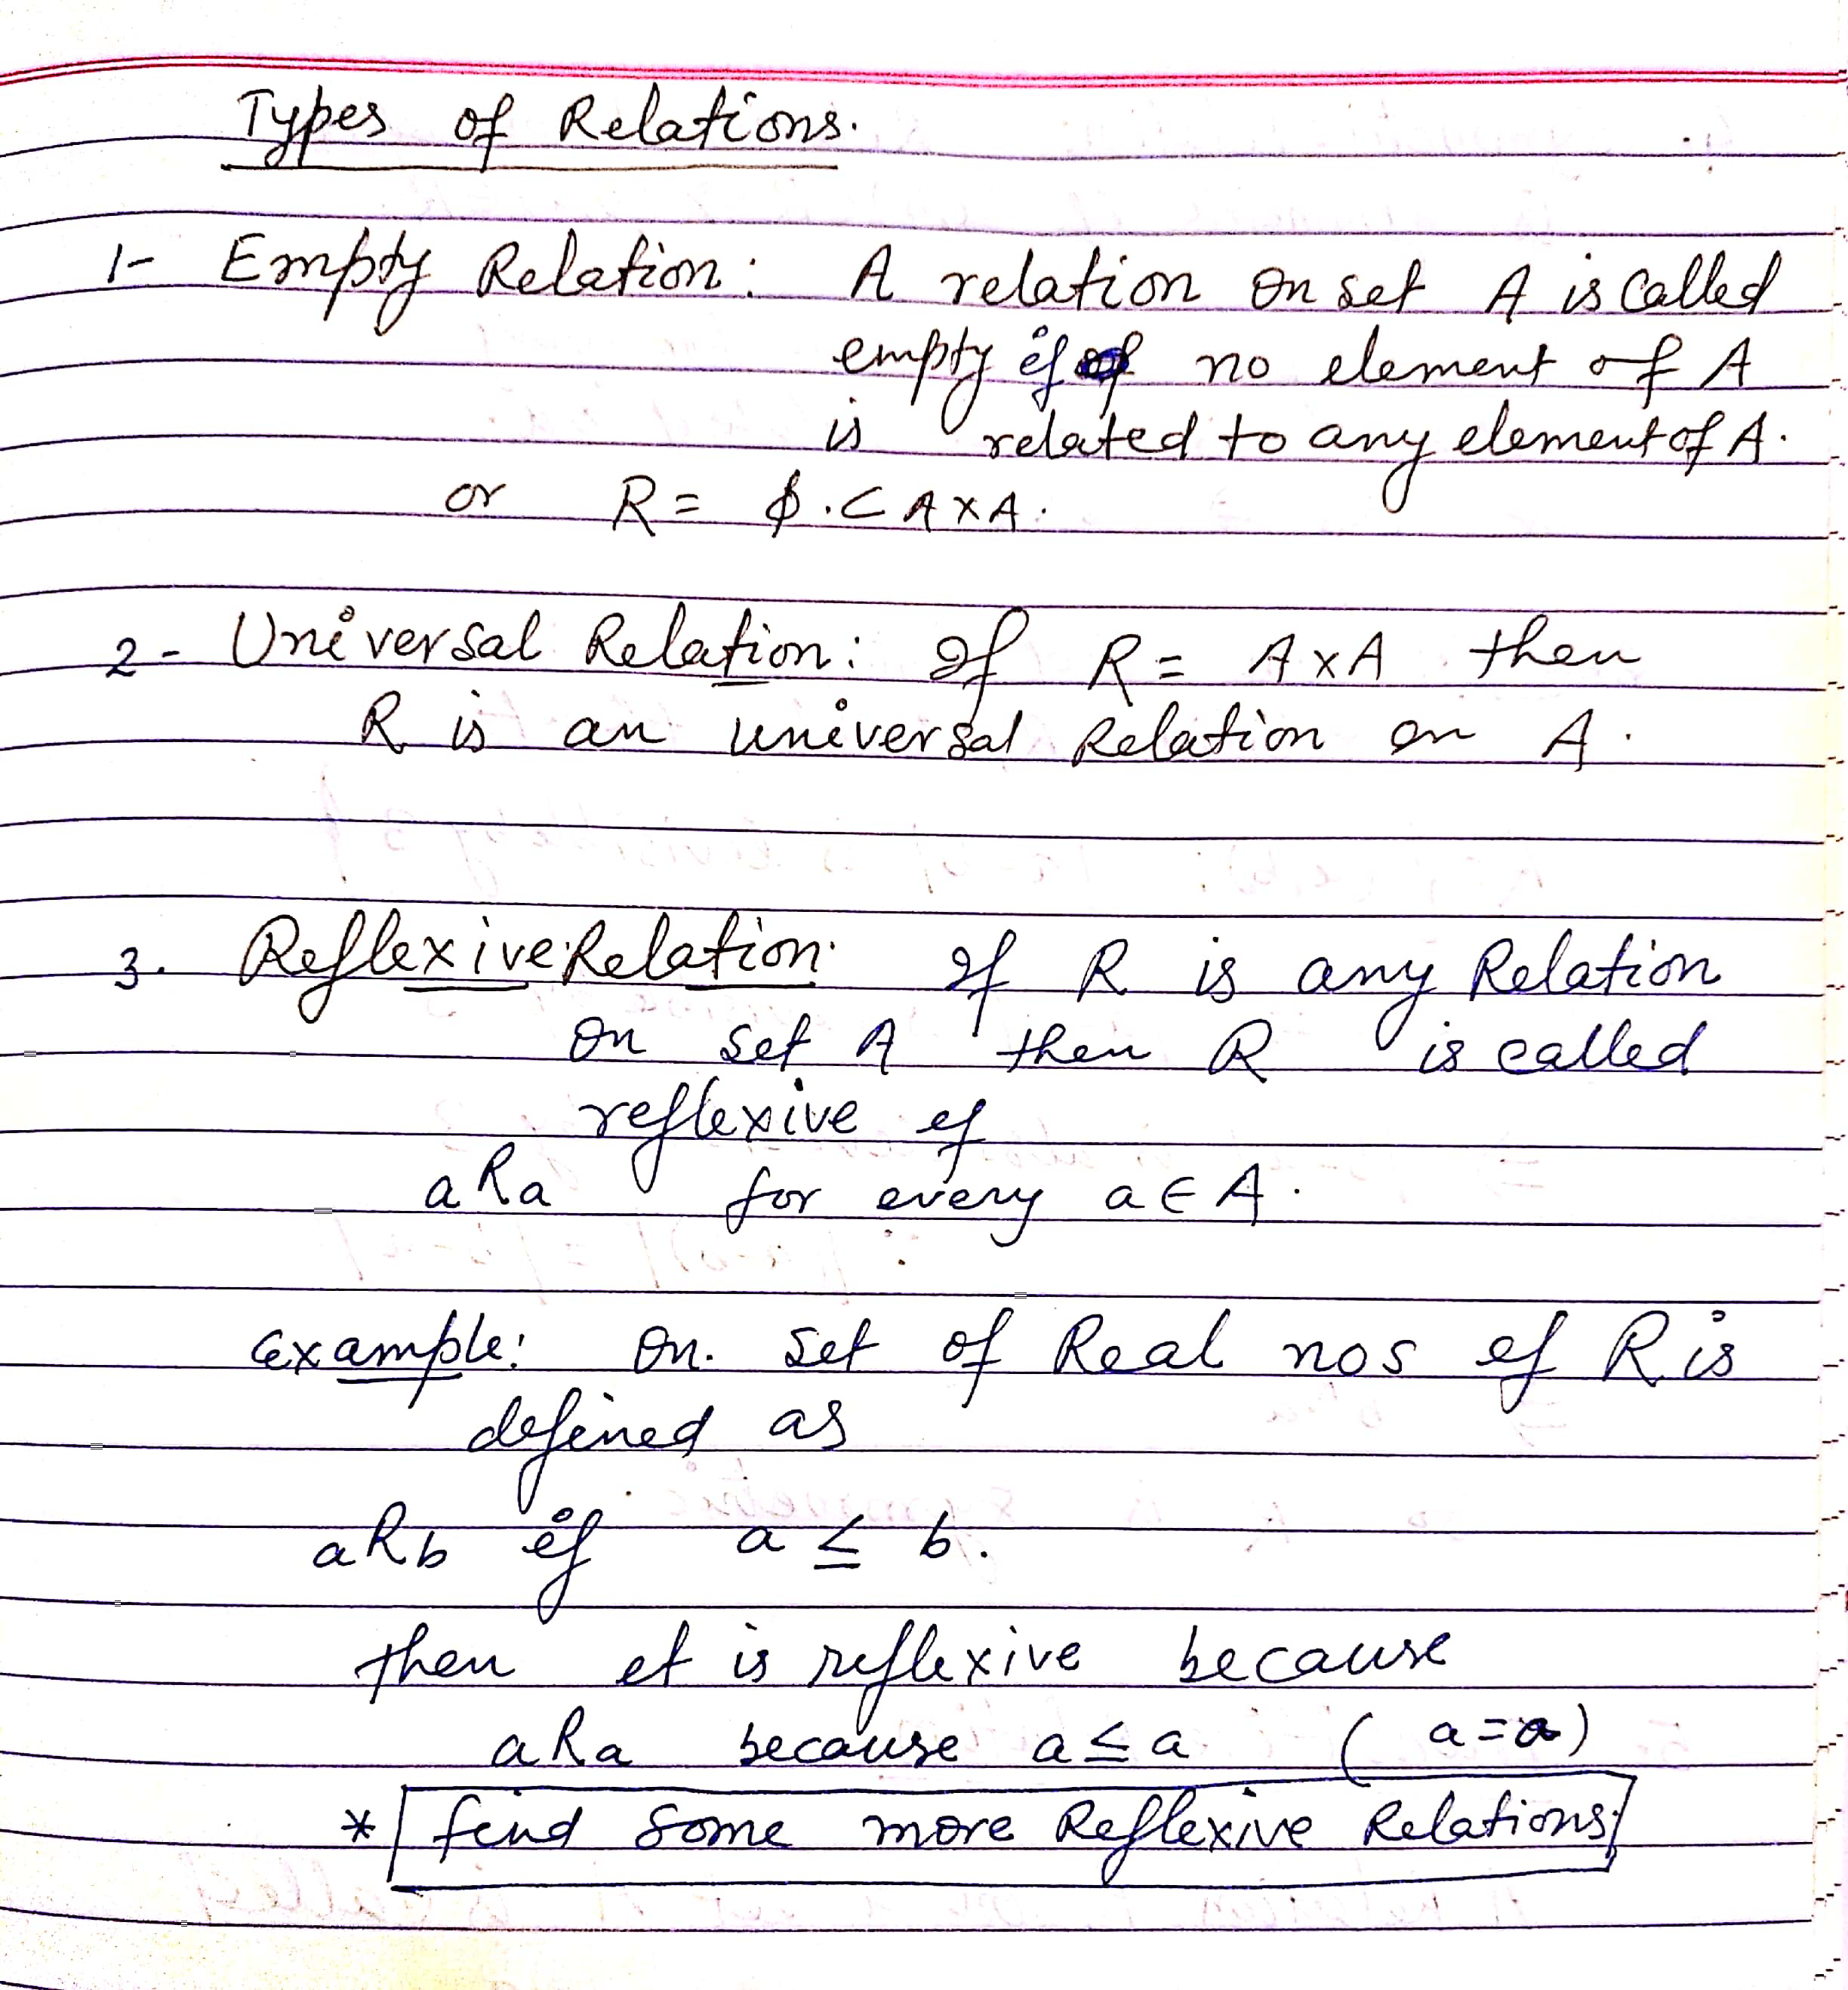 Types of Relations.
1- Empty Relation: A relation on set A is called
empty if no element of A
is related to any element of A.
or R = ϕ. ⊂ A×A.
2- Universal Relation: If R = A×A then
R is an universal Relation on A.
3. Reflexive Relation: If R is any Relation
on set A then R is called
reflexive if
aRa for every a ∈ A.
Example: On set of Real nos if R is
defined as
aRb if a ≤ b.
then it is reflexive because
aRa because a ≤ a (a=a)
* find some more Reflexive Relations